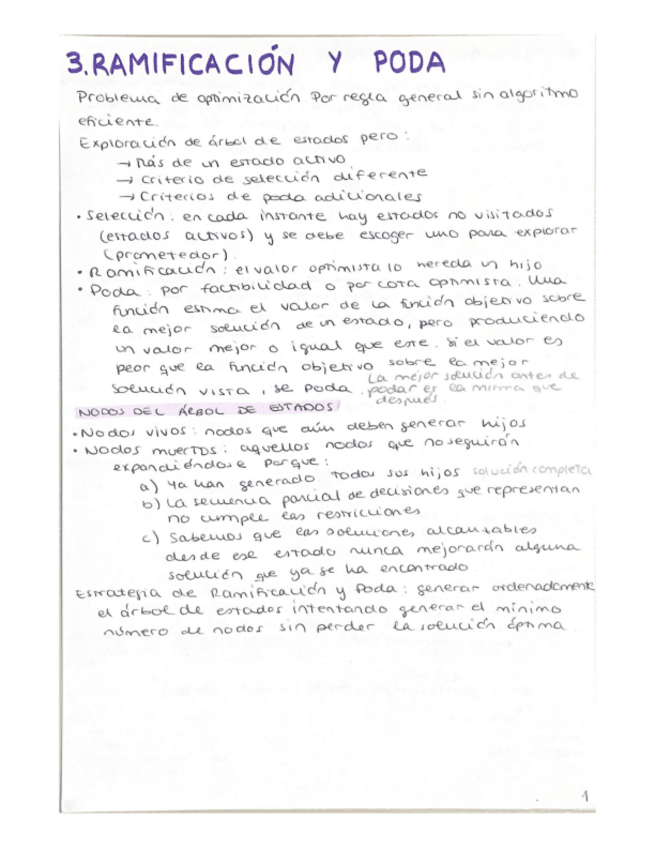 3. RAMIFICACIÓN Y PODA
Problema de optimización Por regla general sin algoritmo
eficiente.
Exploración de árbol de estados pero:
→ Más de un estado activo
→ Criterio de selección diferente
→ Criterios de poda adicionales
• Selección: en cada instante hay estados no visitados
(estados activos) y se debe escoger uno para explorar
(prometedor).
• Ramificación: el valor optimista lo hereda un hijo
• Poda: por factibilidad o por cota optimista. Una
función estima el valor de la función objetivo sobre
la mejor solución de un estado, pero produciendo
un valor mejor o igual que este. Si el valor es
peor que la función objetivo sobre la mejor
solución vista, se poda.
La mejor solución antes de
podar es la misma que
después
NODOS DEL ÁRBOL DE ESTADOS
• Nodos vivos: nodos que aún deben generar hijos
• Nodos muertos: aquellos nodos que no seguirán
expandiéndose porque:
a) Ya han generado todos sus hijos solución completa
b) La secuencia parcial de decisiones que representan
no cumple las restricciones
c) Sabemos que las soluciones alcanzables
desde ese estado nunca mejorarán alguna
solución que ya se ha encontrado
Estrategia de Ramificación y Poda: generar ordenadamente
el árbol de estados intentando generar el mínimo
número de nodos sin perder la solución óptima
1